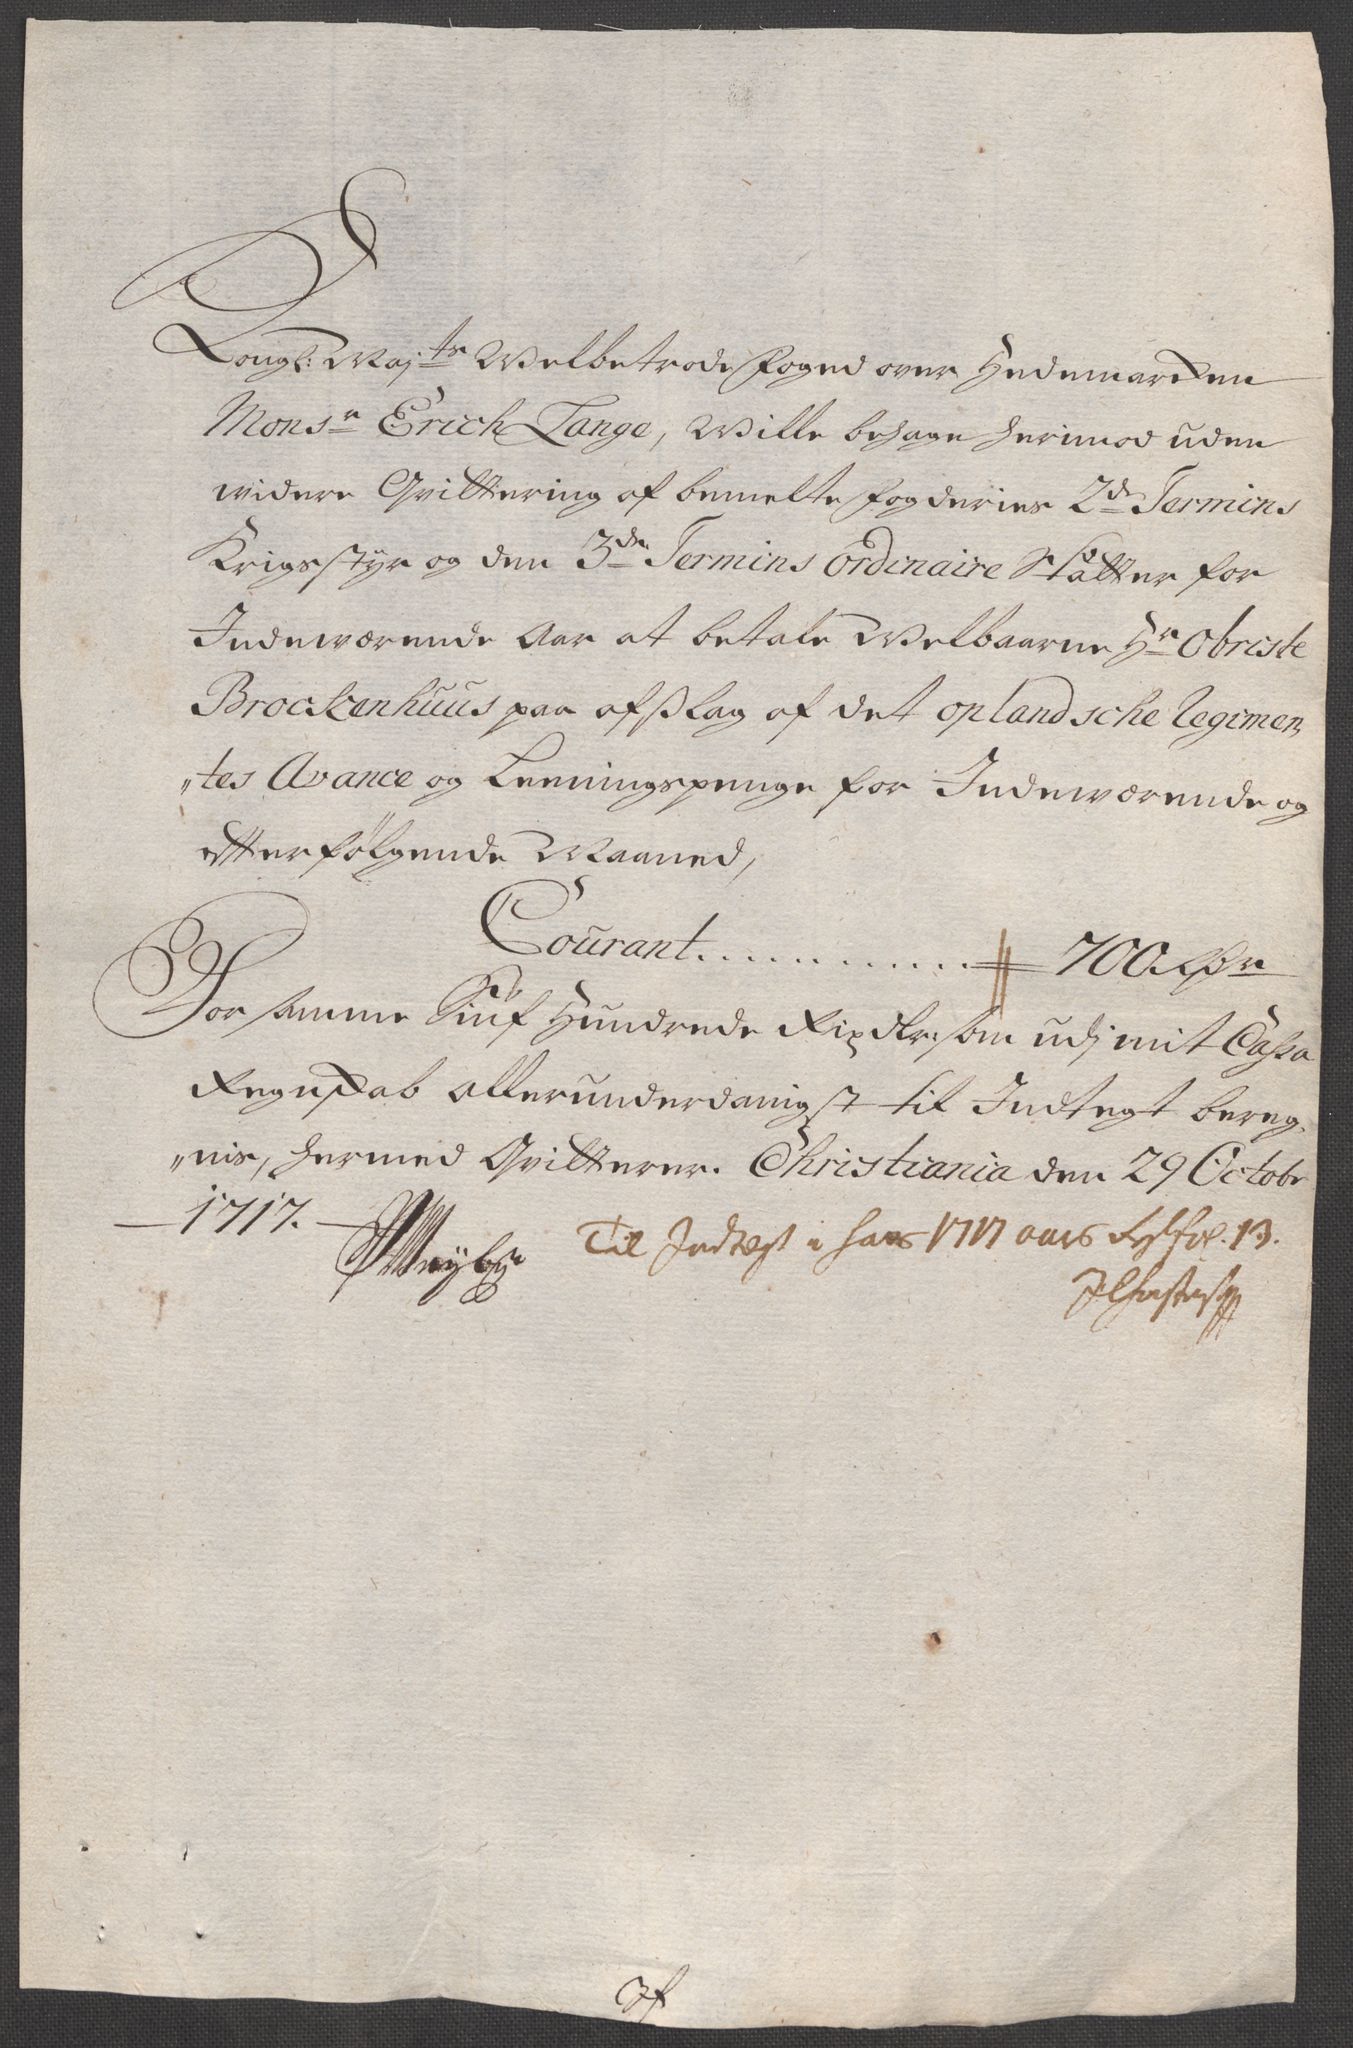 Kongl: Maj:ts Welbetrode foged over Hedemarcken
Monsr Erich Lange, Wille behage herimod uden
widere Qvittering af bemelte fogderies 2de Termins
Krigsstyr og den 3de Termins Ordinaire Skatter for
Indewærende Aar at betale Welbaarne Hr Obriste
Brockenhuus paa afslag af det oplandsche Regimen,
"tes Avance og Leeningspenge for Indewærende og
efterfølgende Maaned,
Courant.......... 700 Rdr
For samme Siuf Hundrede Rixdlr: som udj mit Cassa
Regnskab allerunderdanigst til Indtegt bereg,
"nis, hermed Qvitterer. Christiania den 29 Octobr
1717.
Til Indtegt i hans 1717 aars Fol. 13.